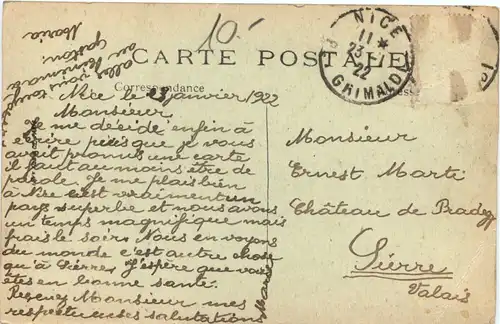 10.-
allez vous toujours
au cinéma
Gaston
Maria
CARTE POSTALE
Correspondance
NICE
11 *
23 - 1
22
GRIMALDI
Nice le 23 janvier 1922
Monsieur.
Je me decide enfin à
écrire puisque je vous
avait promis une carte
il faut au moins être de
parole. Je me plais bien
à Nice c'est vraiment un
pays superbe et nous avons
un temps magnifique mais
frais le soir. Nous en voyons
du monde c'est autre chose
qu'à Sierre. J'espère que vous
êtes en bonne santé.
Recevez Monsieur mes
respectueuses salutations
Maria
Monsieur
Ernest Marti
Château de Pradegg
Sierre
Valais